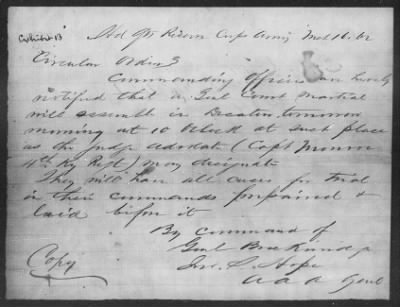 Exhibit B
Hd Qrs Reserve Corps Army Mch 16. 62
Circular Orders
Commanding Officers are hereby
notified that a Genl Court Martial
will assemble in Decatur tomorrow
morning at 10 Oclock at such place
as the judge advocate (Capt Monroe
4th Ky Regt) may designate
They will have all cases for trial
in their commands prepared &
laid before it
By command of
Genl Breckinridge
A A A Genl
Copy